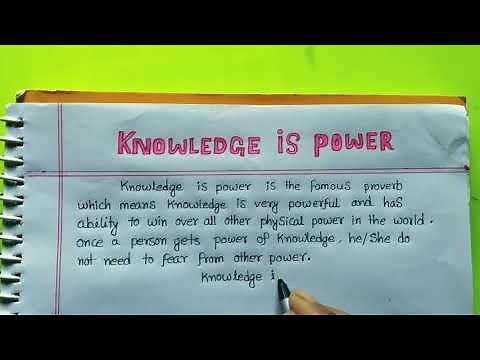 KNOWLEDGE IS POWER
Knowledge is power is the famous proverb
which means knowledge is very powerful and has
ability to win over all other physical power in the world.
Once a person gets power of knowledge, he/she do
not need to fear from other power.
Knowledge i